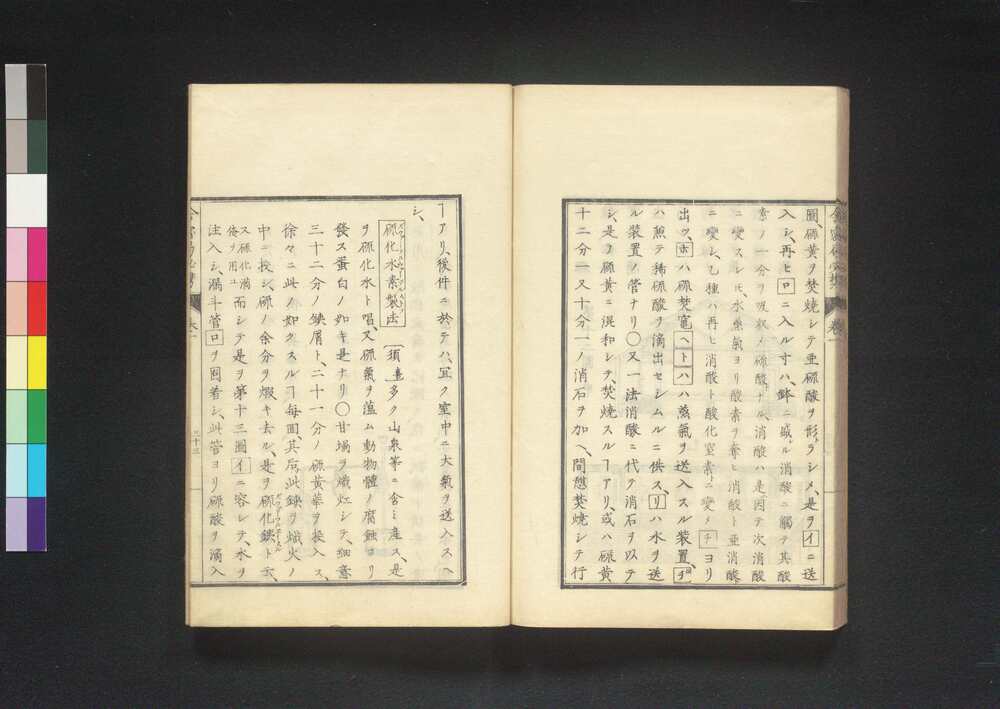 圖、硫黄ヲ焚燒シテ亜硫酸ヲ形ラシメ、是ヲイニ送
入シ、再ヒロニ入ル寸ハ、鉢ニ盛ル消酸ニ觸テ其酸
素ノ一分ヲ吸収メ硫酸ナル、消酸ハ是因テ次消酸
ニ變スレ氏、水素氣ヨリ酸素ヲ奪ヒ消酸ト亜消酸
ニ變シ、乙種ハ再ヒ消酸ト酸化窒素ニ變メチヨリ
出ツ、ホハ硫焚竈ヘトハハ蒸氣ヲ送入スル装置、
ハ煎テ稀硫酸ヲ滴出セシムルニ供ス、リハ水ヲ送
ル装置ノ管ナリ〇又一法消酸ニ代ク消石ヲ以テ
シ、是ノ硫黄ニ混和シテ、焚燒スルヿアリ、或ハ硫黄
十二分一又十分一ノ消石ヲ加ヘ、間憩焚燒シテ行
ヿアリ、後件ニ於テハ、冝ク室中ニ大氣ヲ送入スヘ
シ、
硫化水素製法 多ク山泉等ニ含ミ産ス、是
ヲ硫化水ト唱、又硫氣ヲ薀ム動物體ノ腐蝕ヨリ
發ス蛋白ノ如キ是ナリ〇甘堝ヲ熾灶シテ、細意
三十二分ノ鐵屑ト、二十一分ノ硫黄華ヲ投入ス、
徐々ニ此ノ如クスルヿ毎囬、其后此鐵ヲ熾火ノ
中ニ投シ、硫ノ余分ヲ煆キ去ル、是ヲ硫化鐵ト云、
而シテ是ヲ第十三圖イニ容シテ、水ヲ
注入シ、漏斗管ロヲ固着シ、此管ヨリ硫酸ヲ滴入